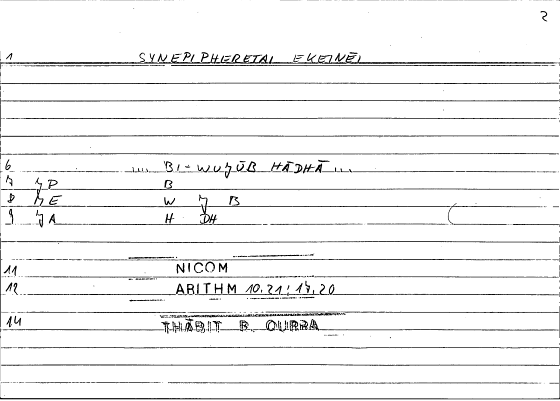 2
1 SYNEPIPHERETAI EKEINĒI
6 .... BI-WUJŪB HĀDHĀ ...
7 JP B
8 JE W J B
9 JA H DH
11 NICOM
12 ARITHM 10.21; 17.20
14 THĀBIT B. QURRA